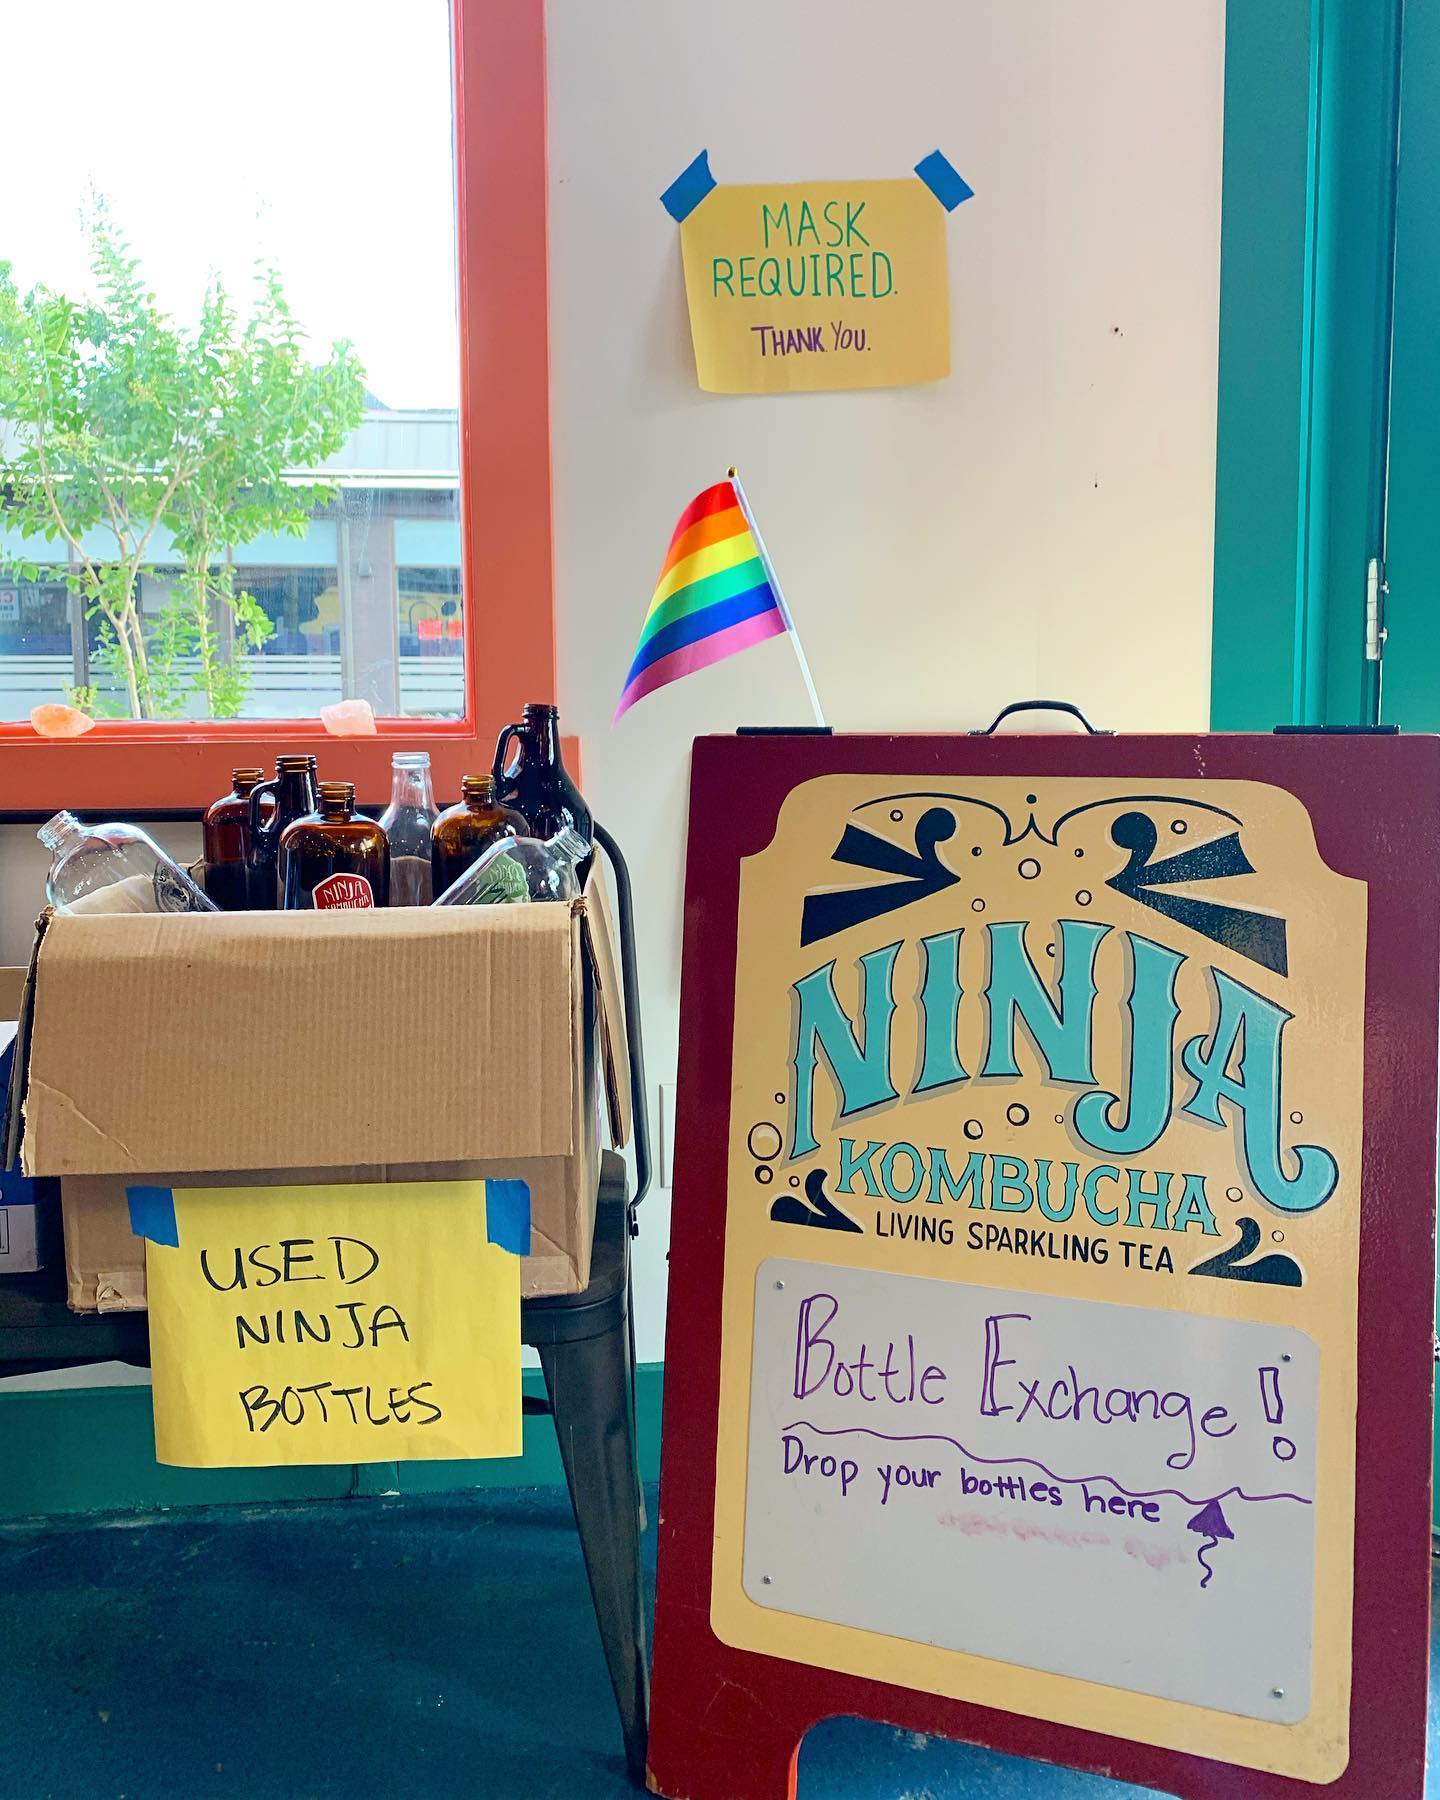 MASK
REQUIRED.
THANK YOU.
NINJA
KOMBUCHA
NINJA
KOMBUCHA
LIVING SPARKLING TEA
Bottle Exchange!
Drop your bottles here
USED
NINJA
BOTTLES